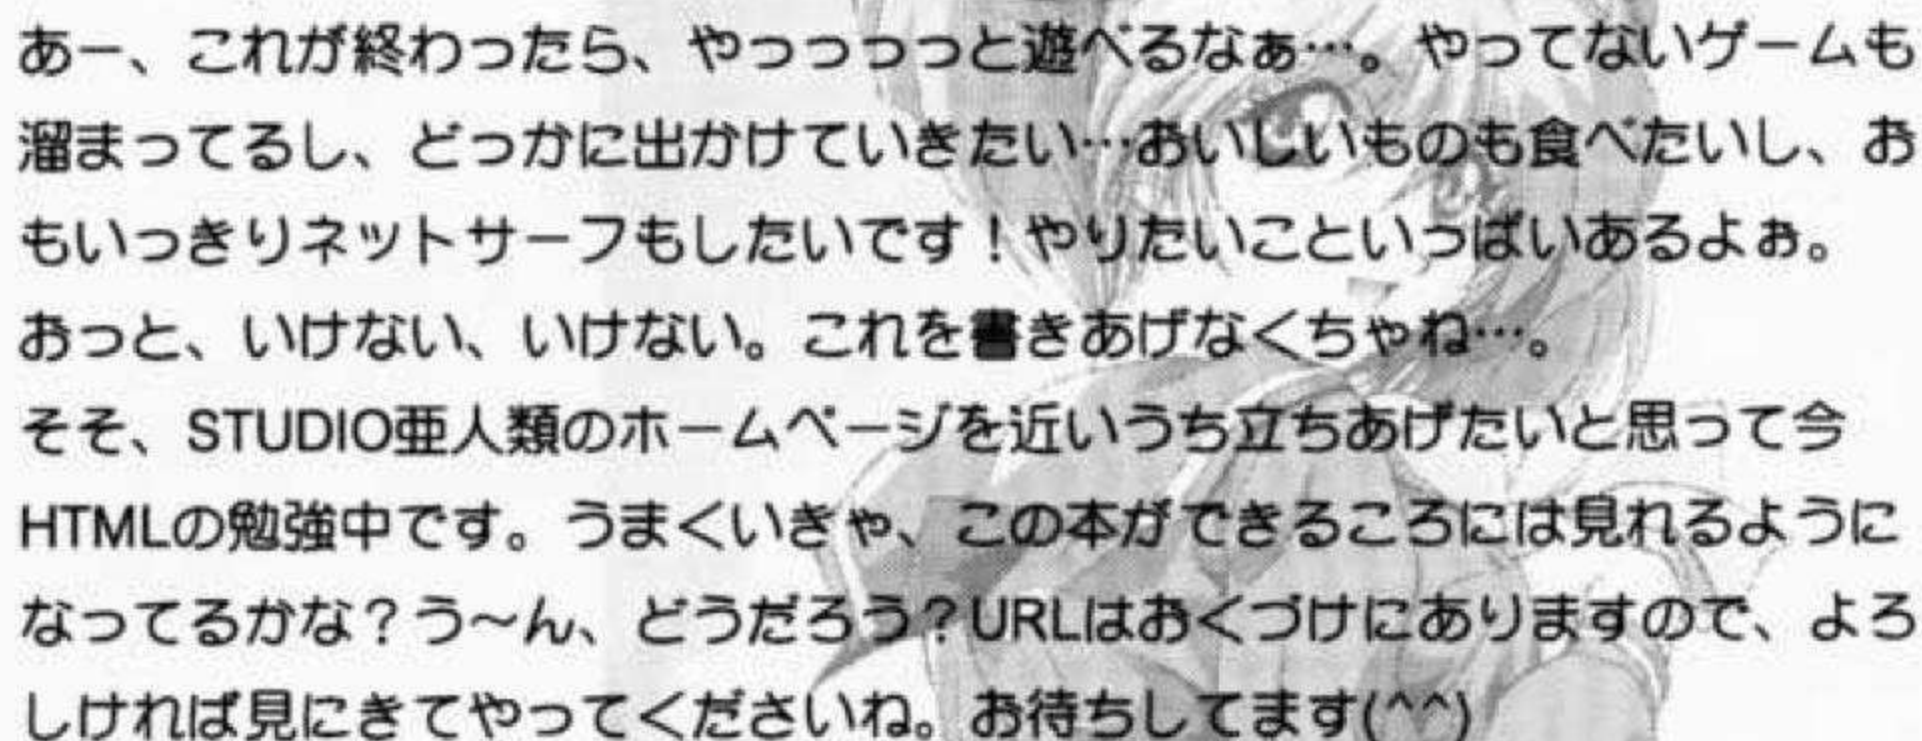 あー、これが終わったら、やっっっっと遊べるなぁ…。やってないゲームも
溜まってるし、どっかに出かけていきたい…おいしいものも食べたいし、お
もいっきりネットサーフもしたいです！やりたいことといっぱいあるよぉ。
おっと、いけない、いけない。これを書きあげなくちゃね…。
そそ、STUDIO亜人類のホームページを近いうち立ちあげたいと思って今
HTMLの勉強中です。うまくいきゃ、この本ができるころには見れるように
なってるかな？う～ん、どうだろう？URLはおくづけにありますので、よろ
しければ見にきてやってくださいね。お待ちしてます(^^)